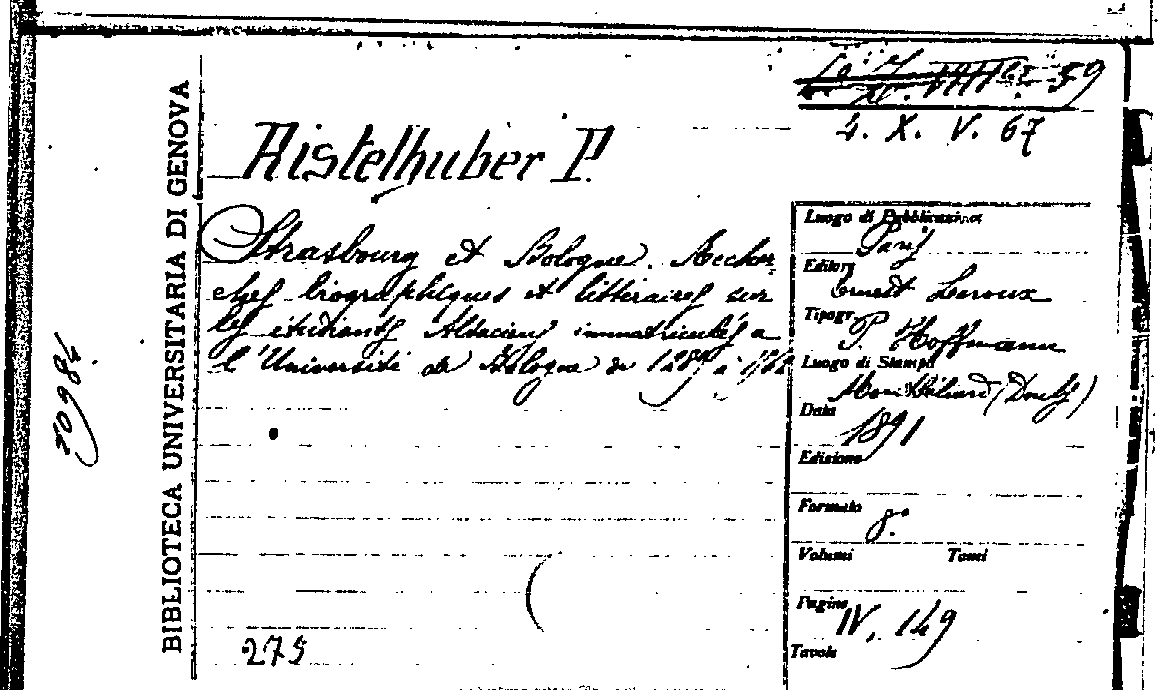 59
4. X. V. 67
BIBLIOTECA UNIVERSITARIA DI GENOVA
Ristelhuber P.
Strasbourg et Bologne. Recher-
ches biographiques et littéraires sur
les étudiants Alsaciens immatriculés a
l'Université de Bologne de 1289 à 1562
275
Luogo di Pubblicazione
Paris
Editore
Ernest Leroux
Tipogr.
P. Hoffmann
Luogo di Stampa
Montbéliard (Doubs)
Data
1891
Edizione
Formato
8°
Volumi Tomi
Pagine
IV, 149
Tavole